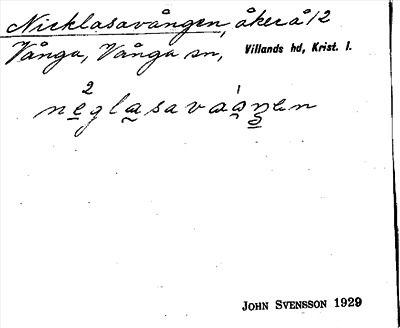 Nicklasavången, åker å 12
Vånga, Vånga sn, Villands hd, Krist. l.
neglasavåŋen
JOHN SVENSSON 1929